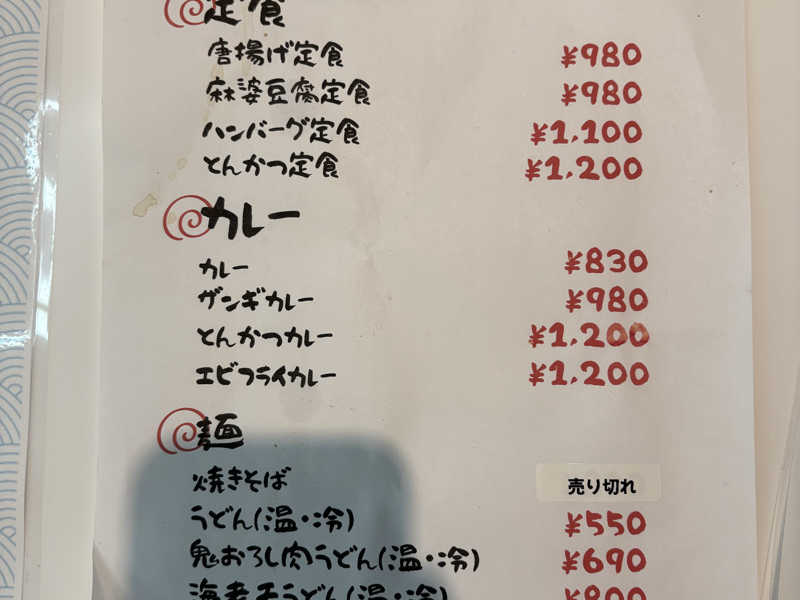 定食
唐揚げ定食 ¥980
麻婆豆腐定食 ¥980
ハンバーグ定食 ¥1,100
とんかつ定食 ¥1,200
カレー
カレー ¥830
ザンギカレー ¥980
とんかつカレー ¥1,200
エビフライカレー ¥1,200
麺
焼きそば 売り切れ
うどん(温・冷) ¥550
鬼おろし肉うどん(温・冷) ¥690
海老天うどん(温・冷) ¥800